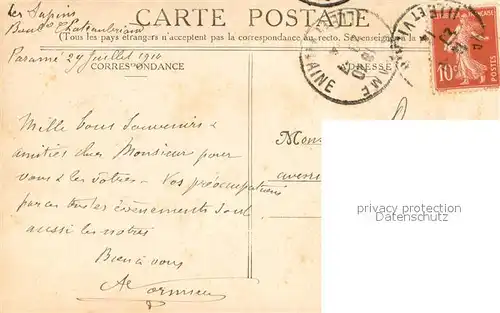 Les Sapins
Boulᵈ Chateaubriand
CARTE POSTALE
Tous les pays étrangers n'acceptent pas la correspondance au recto. Se renseigner à la
Paramé 29 Juillet 1914
CORRESPONDANCE
ADRESSE
10ᶜ
POSTES
ILLE-ET-VILAINE
Mille bons souvenirs &
amitiés cher Monsieur pour
vous & les votres - Vos préoccupations
par ces tous les évènements sont
aussi les notres
Bien à vous
Mons
avenue
privacy protection
Datenschutz